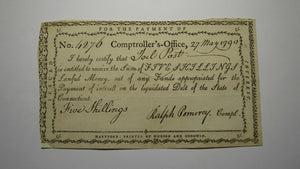 FOR THE PAYMENT OF
No. 4276 Comptroller's-Office, 27 May 1790
I hereby certify that Joel Post
is entitled to receive the Sum of FIVE SHILLINGS
Lawful Money, out of any Funds appropriated for the
Payment of interest on the liquidated Debt of the State of
Connecticut.
Five Shillings
Ralph Pomeroy Compt.
HARTFORD: PRINTED BY HUDSON AND GOODWIN.
INTEREST